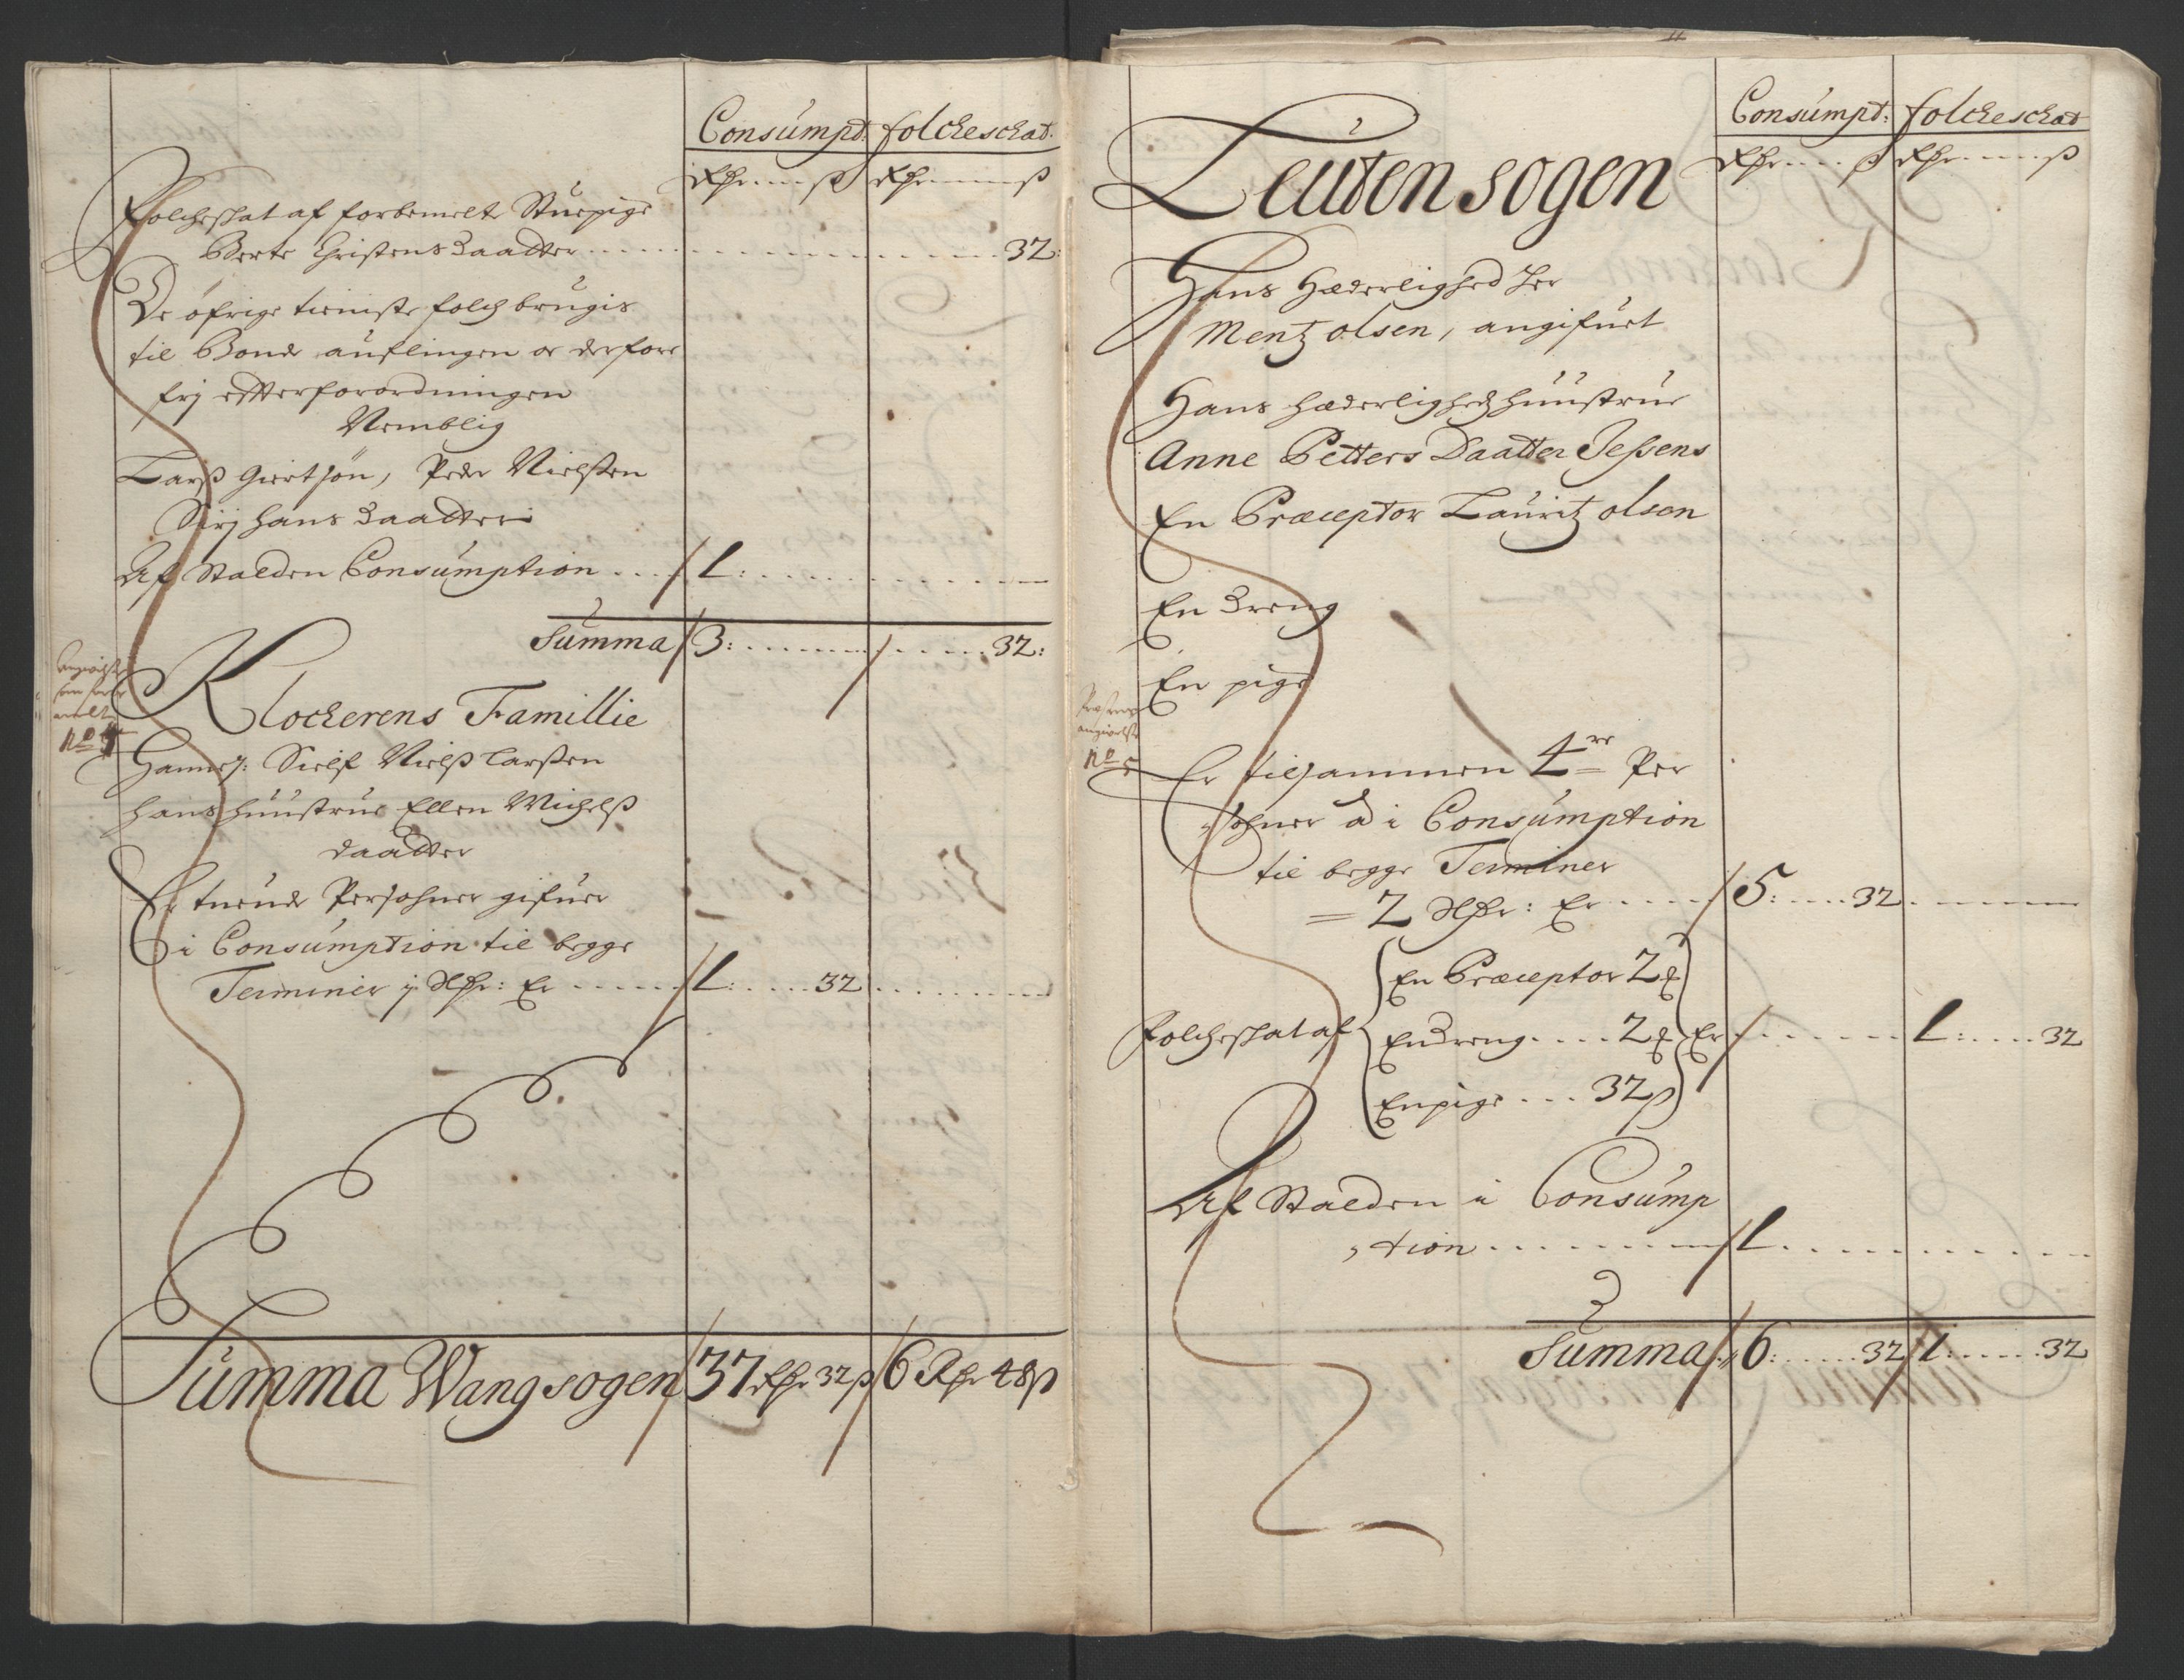 Consumpt: folckeschat.
Rdr ß Rdr ß
Folcheskat af forbemelte Stuepige
Berte Christens daatter 32:
De øfrige tieniste folch brugis
til Bonde auflingen er derfore
frj effter forordningen
Nemblig
Larß Giertsøn, Peder Nielßen
Sirj Hans daatter
Af Stalden Consumption 1:
Summa 3: 32:
Klockerens Famillie
angivelse
No
Hannem Sielf Nielß Larßen
hans huustrue Ellen Michelß
daatter
Er tuende Persohner gifuer
i Consumption til begge
Terminer j Rdr: Er 1: 32
Summa Wang sogen 37 Rdr 32 ß 6 Rdr 48 ß
Consumpt: folckeschat
Rdr ß Rdr ß
Leuten sogen
Hans Hæderlighed Her
Mentz olsen, angifuet
Hans hæderligheds huustrue
Anne Petters Daatter Jeßens
En Præceptor Lauritz olsen
En dreng
En pige
angivelse
No 5
Er tilsammen 4re Per
sohner a i Consumption
til begge Terminer
= 2 Rdr: Er 5: 32
Folcheskat af
En Præceptor 2
En dreng 2 Er 1: 32
En pige 32 ß
Af Stalden i Consump
tion 1
Summa 6: 32 1: 32